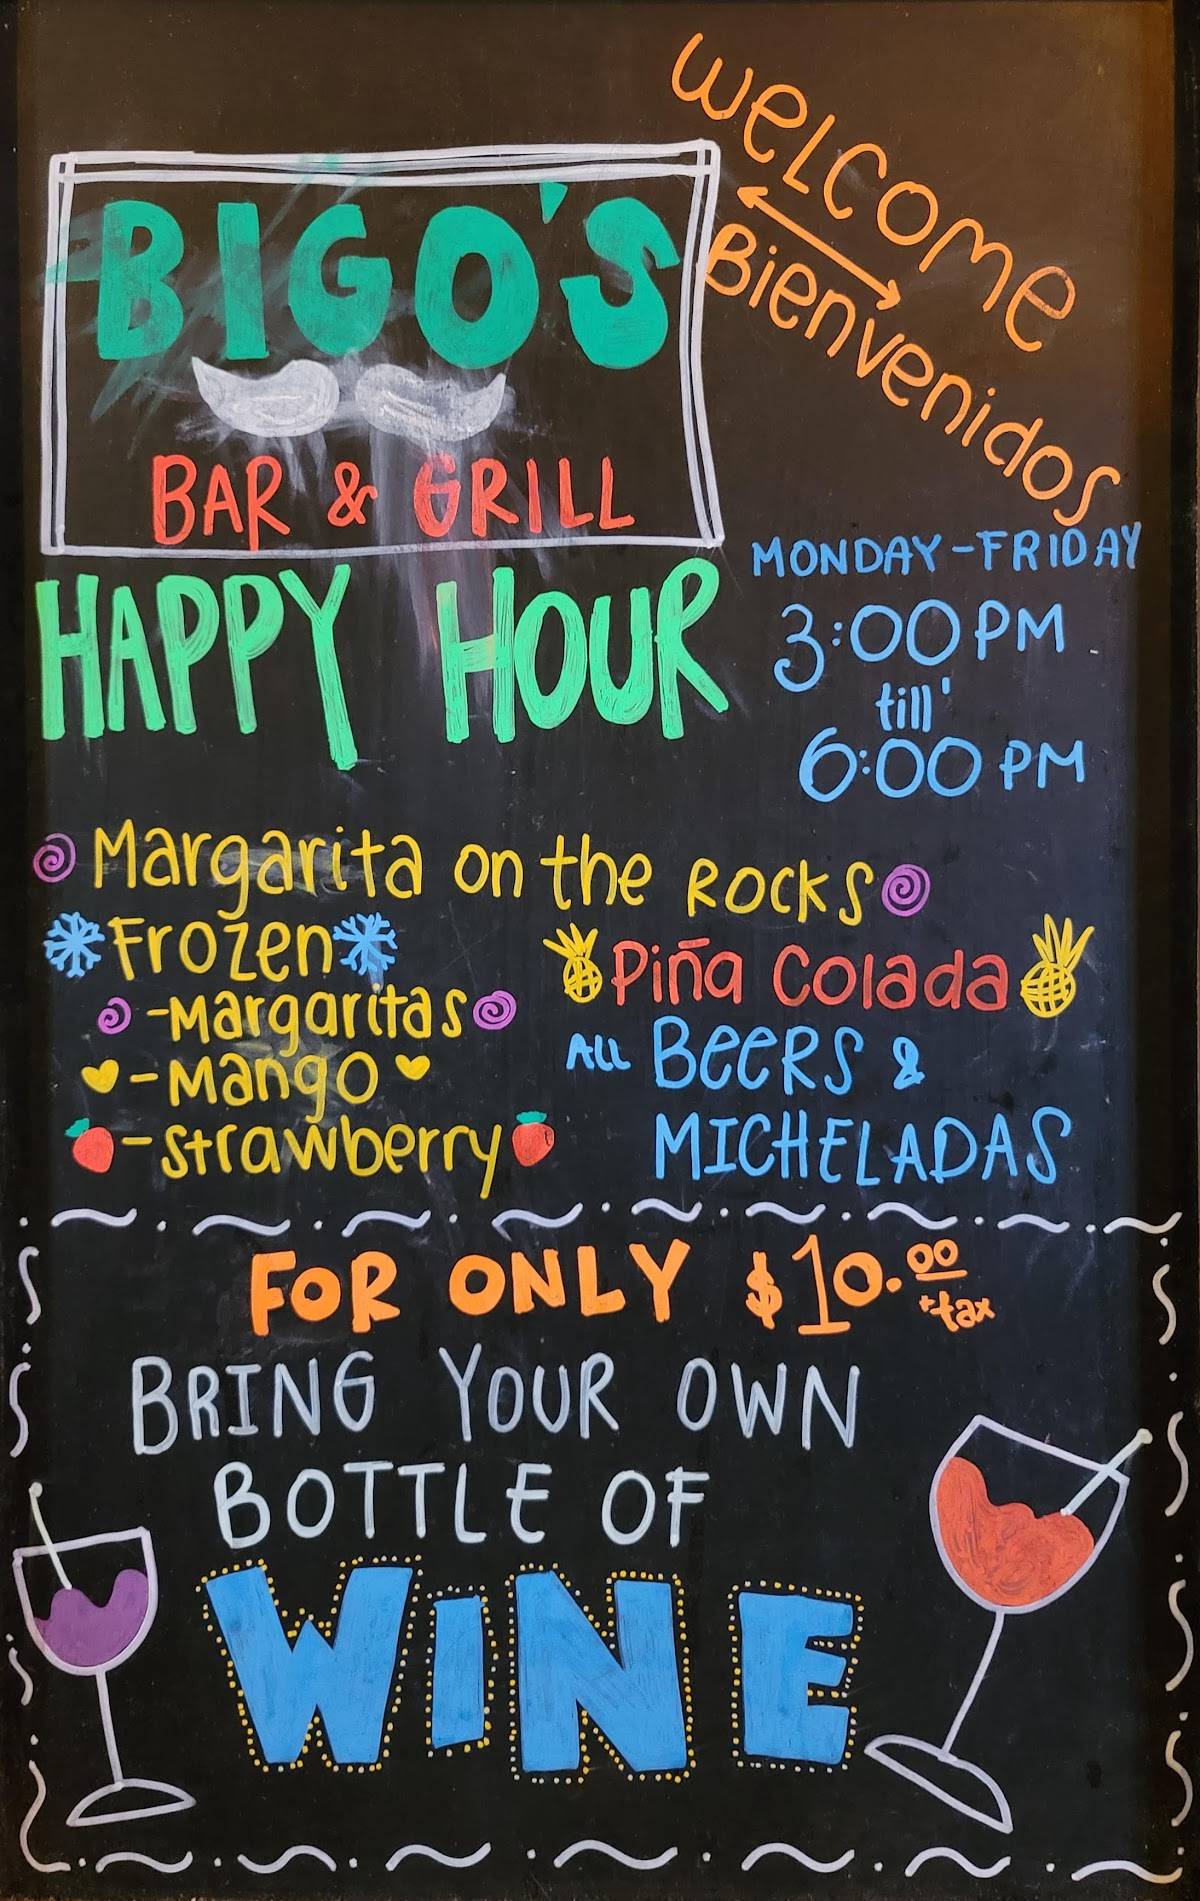 Welcome
Bienvenidos
BIGO'S
BAR & GRILL
HAPPY HOUR
MONDAY-FRIDAY
3:00 PM
till'
6:00 PM
Margarita on the ROCKS
Frozen
-Margaritas
-Mango
-Strawberry
Piña Colada
ALL BEERS &
MICHELADAS
FOR ONLY $10.00 +tax
BRING YOUR OWN
BOTTLE OF
WINE